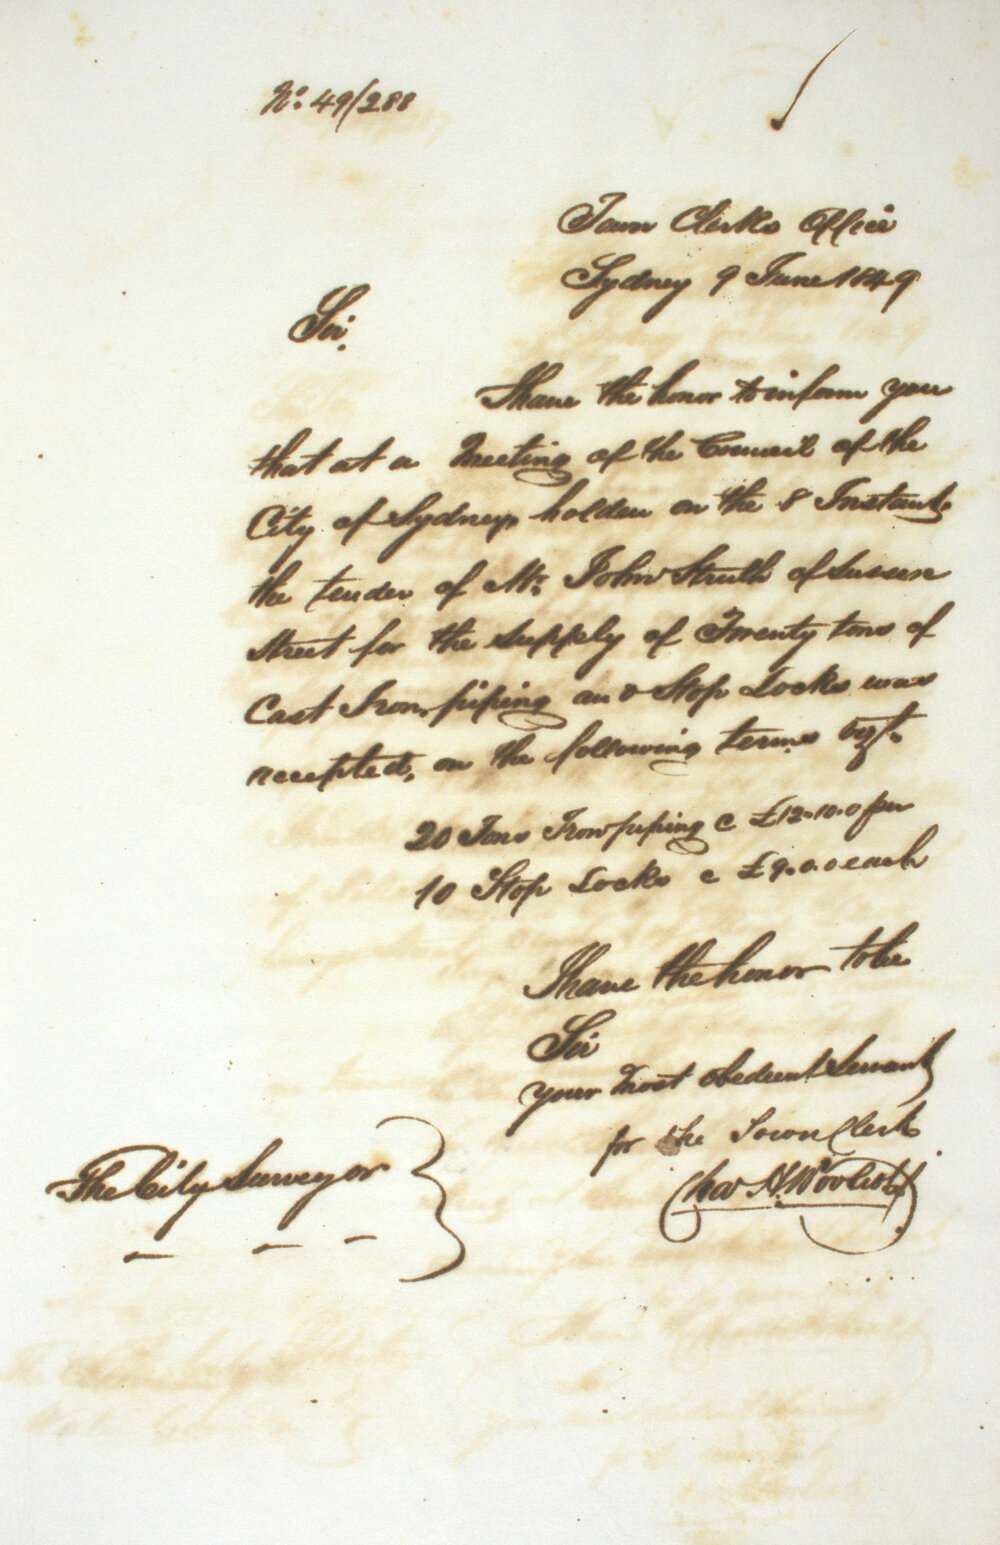 No. 49/288
Town Clerks Office
Sydney 9 June 1849
Sir.
I have the honor to inform you
that at a Meeting of the Council of the
City of Sydney, holden on the 8 Instant
the tender of Mr. John Struth of Sussex
Street for the supply of Twenty tons of
Cast Iron piping and Stop Locks was
accepted, on the following terms vizt.
20 Tons Iron piping @ £12.10.0 per
10 Stop Locks @ £9.0.0 each
I have the honor to be
Sir
Your Most obedient Servant
for the Town Clerk
Chas H. Woolcott
The City Surveyor